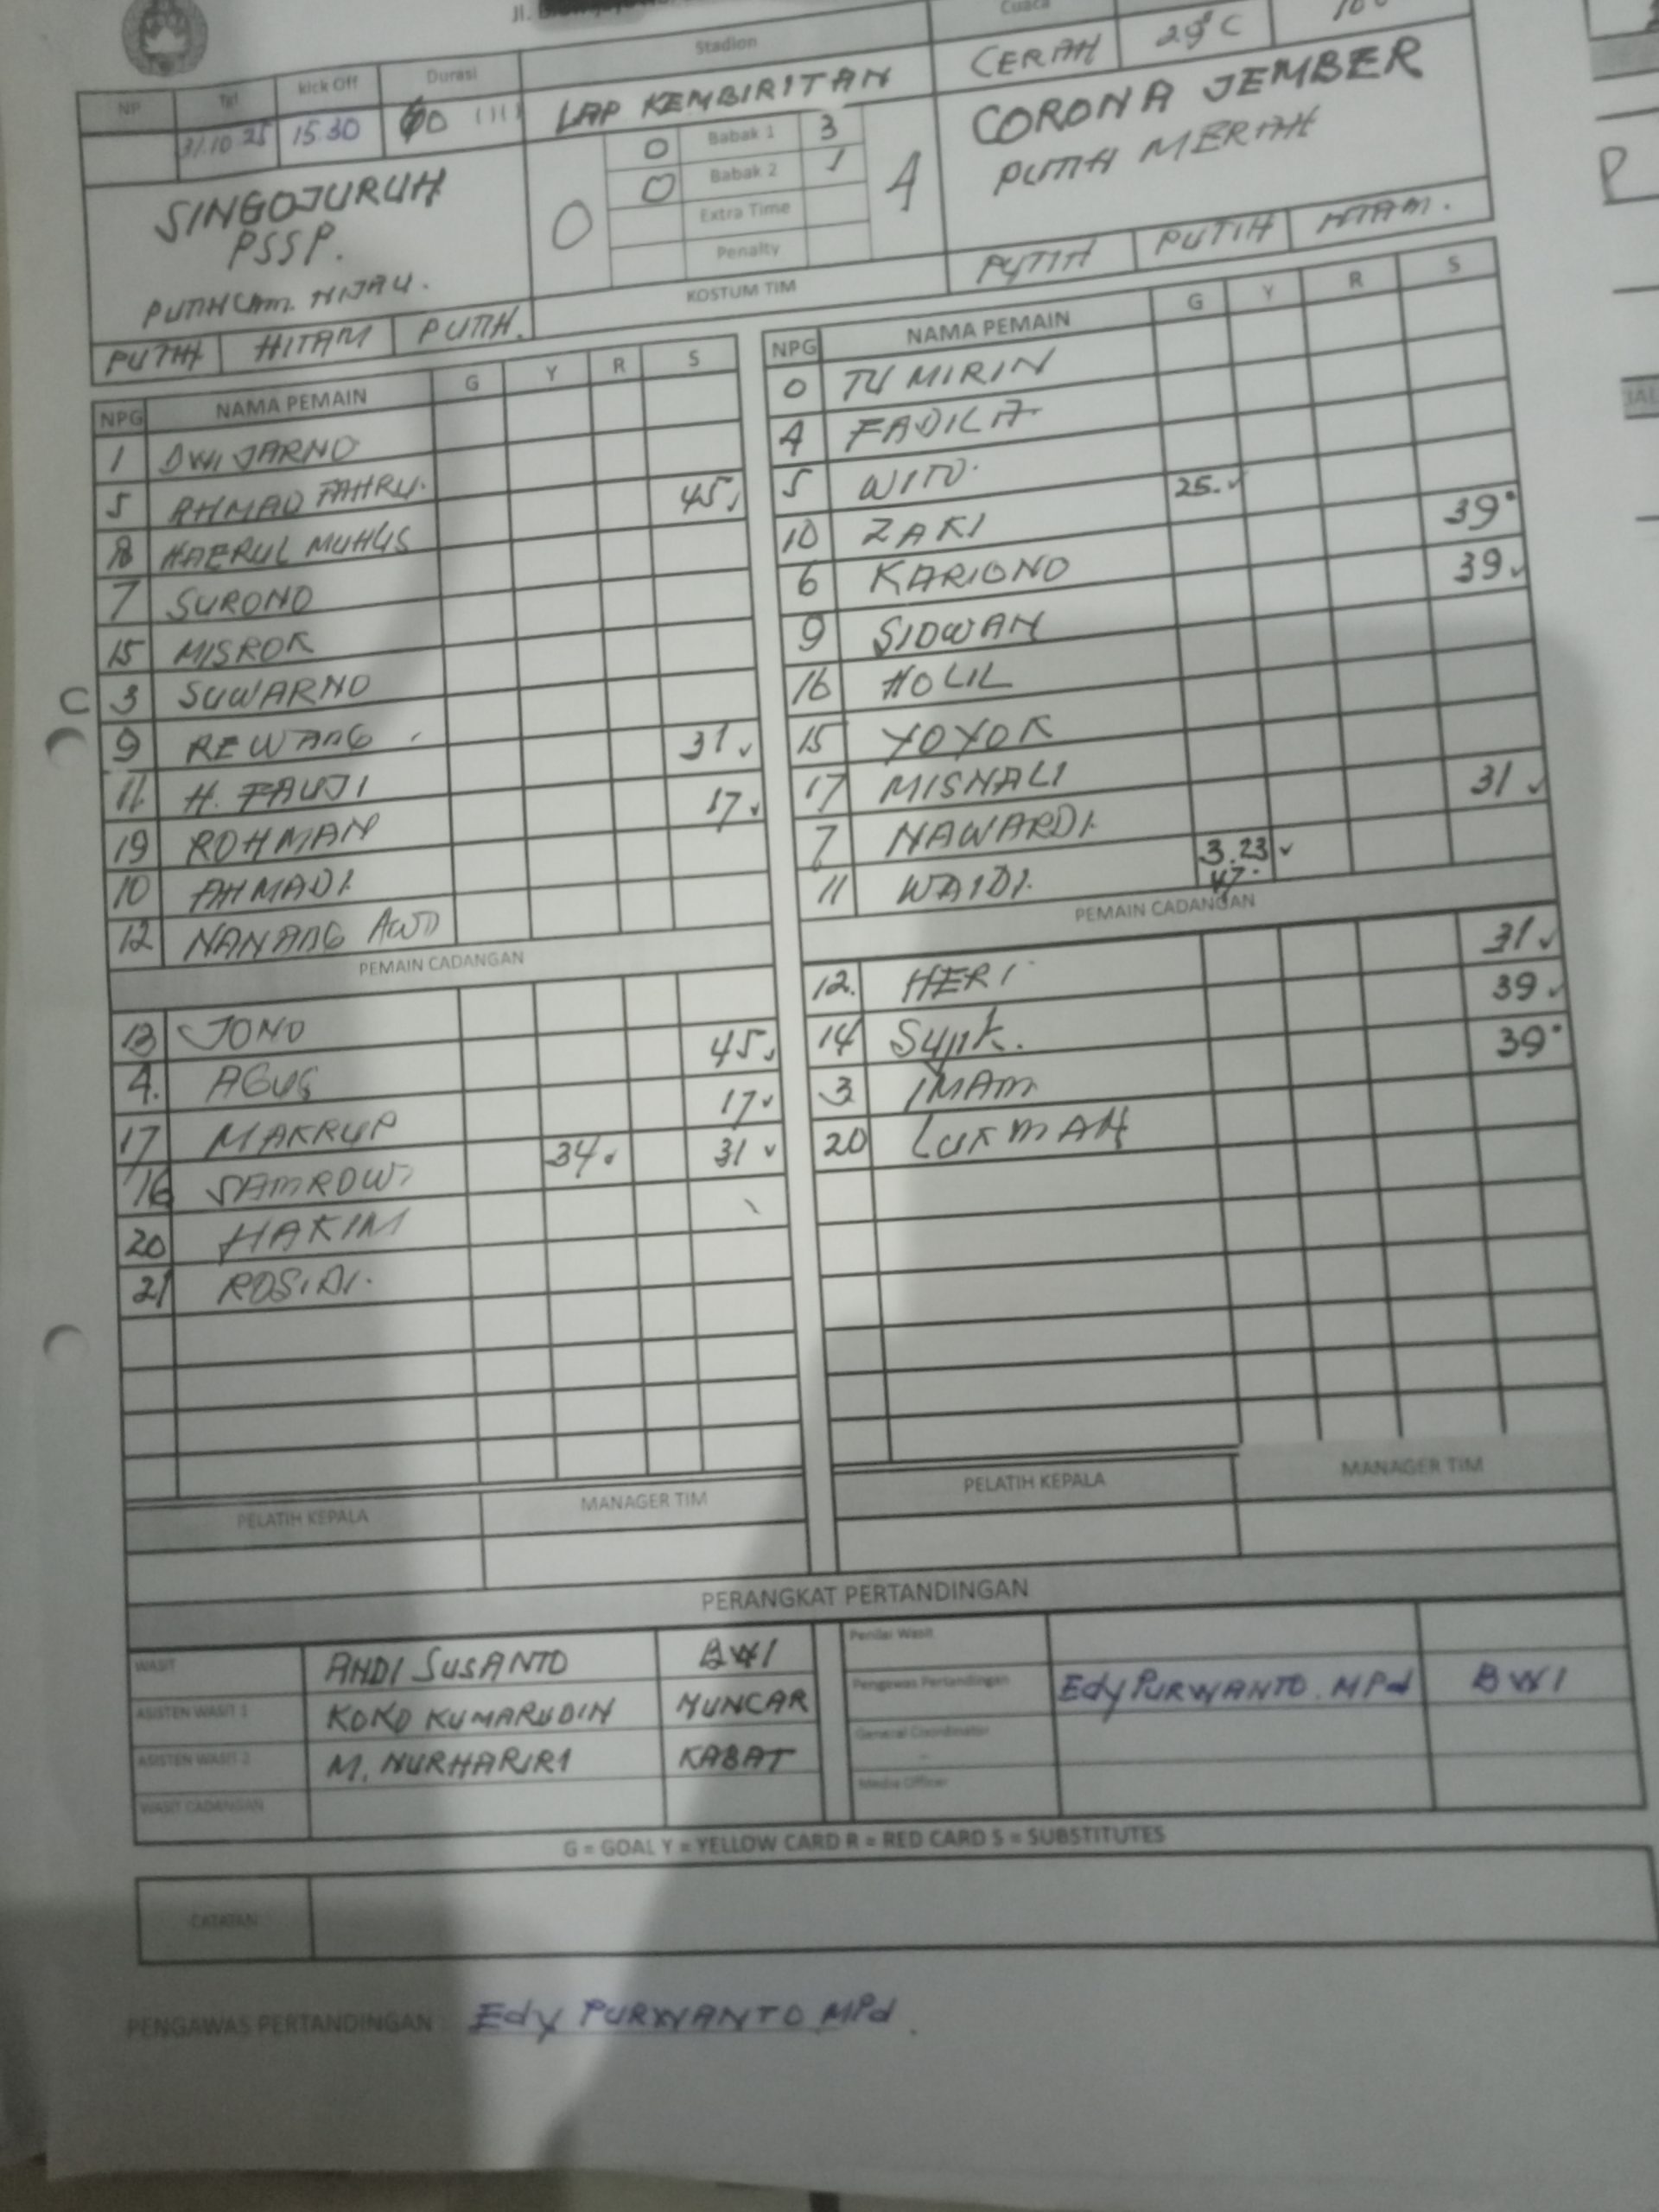 Jl.
Stadion
Cuaca
NP Tgl kick Off Durasi
31.10.25 15.30 60 LAP KEMBIRITAN CERAH 29°C
SINGOJURUH
PSSP.
PUTIH HIJAU.
0
0 Babak 1 3
0 Babak 2 1
Extra Time
Penalty
4
CORONA JEMBER
PUTIH MERAH
PUTIH HITAM PUTIH.
KOSTUM TIM
PUTIH PUTIH HITAM.
NPG NAMA PEMAIN G Y R S
1 DWI JARNO
5 AHMAD FAHRU. 45
18 HAERUL MUHLIS
7 SURONO
15 MISROK
C 3 SUWARNO
9 REWANG 31
11 H. FAUJI 17
19 ROHMAN
10 AHMADI.
12 NANANG AWD
PEMAIN CADANGAN
13 JONO
4. AGUS 45
17 MAKRUP 17
16 SAMROWI 34 31
20 HAKIM
21 ROSIDI.
PELATIH KEPALA MANAGER TIM
NPG NAMA PEMAIN G Y R S
0 TUMIRIN
4 FADILA
5 WITO.
10 ZAKI 25. 39
6 KARIONO 39
9 SIDWAN
16 HOLIL
15 YOYOK
17 MISNALI
7 NAWARDI. 31
11 WAIDI. 3.23
47.
PEMAIN CADANGAN
12. HERI 31
14 39
3 IMAM 39
20 LUKMAN
PELATIH KEPALA MANAGER TIM
PERANGKAT PERTANDINGAN
WASIT ANDI SUSANTO BWI
ASISTEN WASIT 1 KOKO KUMARUDIN MUNCAR
ASISTEN WASIT 2 M. NURHARIRI KABAT
WASIT CADANGAN
Penilai Wasit
Pengawas Pertandingan Edy PURWANTO. MPd BWI
General Coordinator
Media Officer
G = GOAL Y = YELLOW CARD R = RED CARD S = SUBSTITUTES
CATATAN
PENGAWAS PERTANDINGAN : Edy PURWANTO MPd.